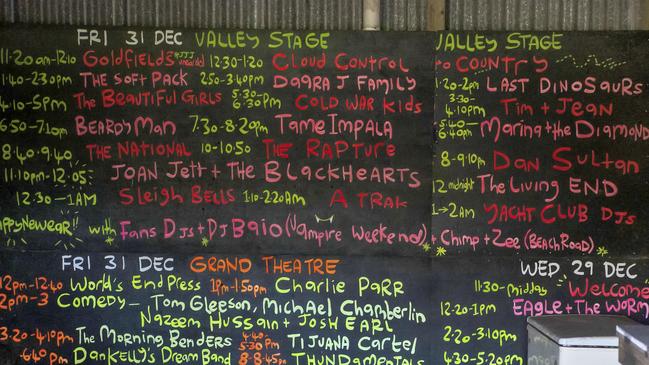 FRI 31 DEC VALLEY STAGE
11:20am-12:10 GOLDFIELDS 12:30-1:20 CLOUD CONTROL
1:40-2:30pm THE SOFT PACK 2:50-3:40pm DAARA J FAMILY
4:10-5pm THE BEAUTIFUL GIRLS 5:30-6:30pm COLD WAR KIDS
6:50-7:10pm BEARDYMAN 7:30-8:20pm TAME IMPALA
8:40-9:40 THE NATIONAL 10-10:50 THE RAPTURE
11:10pm-12:05 JOAN JETT + THE BLACKHEARTS
12:30-1AM SLEIGH BELLS 1:10-2:20AM A TRAK
HAPPY NEW YEAR!! with FANS DJs + DJ BAIO (VAMPIRE WEEKEND) + CHIMP + ZEE (BEACH ROAD)
FRI 31 DEC GRAND THEATRE
12pm-12:40 WORLD'S END PRESS 1pm-1:50pm CHARLIE PARR
2pm-3 COMEDY - TOM GLEESON, MICHAEL CHAMBERLIN
NAZEEM HUSSAIN + JOSH EARL
3:20-4:10pm THE MORNING BENDERS 4:40-5:30pm TIJUANA CARTEL
6:40pm DAN KELLY'S DREAM BAND 8-8:45pm THUNDAMENTALS
VALLEY STAGE
TO COUNTRY
1:20-2pm LAST DINOSAURS
3:30-4:10pm TIM + JEAN
5:50-6:40pm MARINA + THE DIAMOND
8-9:10pm DAN SULTAN
12 midnight THE LIVING END
1-2AM YACHT CLUB DJs
WED 29 DEC
11:30-Midday WELCOME
12:20-1pm EAGLE + THE WORM
2:20-3:10pm
4:30-5:20pm